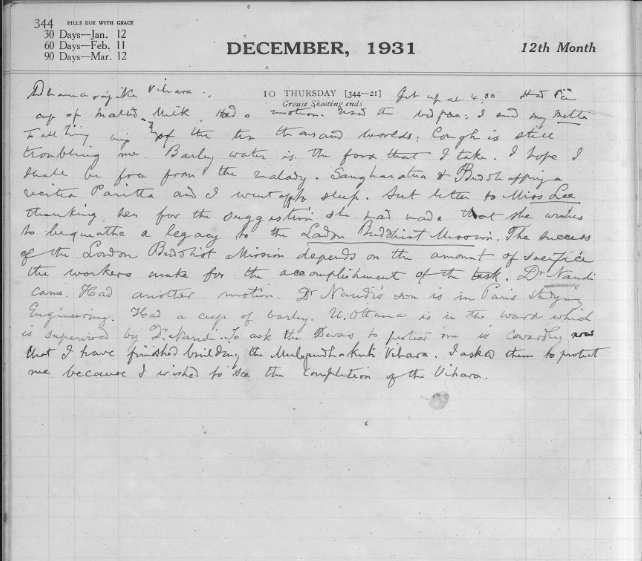 344 BILLS DUE WITH GRACE
30 Days—Jan. 12
60 Days—Feb. 11
90 Days—Mar. 12
DECEMBER, 1931
12th Month
10 THURSDAY [344—21]
Grouse Shooting ends
Vihara. Got up at 4.00 Had
cup of malted Milk. Had a motion. Used the bedpan: I send my Metta
To all living of the ten thousand worlds: Cough is still
troubling me. Barley water is the food that I take. I hope I
shall be free from the malady. Sangharatna &
recited Paritta and I went off to sleep. Sent letter to Miss Lee
thanking her for the suggestion she had made that she wishes
to bequeathe a legacy to the London Buddhist Mission. The success
of the London Buddhist Mission depends on the amount of sacrifice
the workers make for the accomplishment of the task. Dr Nandi
came. Had another motion. Dr Nandi's son is in Paris studying
Engineering. Had a cup of barley. U. Ottama is in the ward which
is supervised by Dr. Nandi. To ask the Devas to protect me is cowardly now
that I have finished building the Mulagandhakuti Vihara. I asked them to protect
me because I wished to see the Completion of the Vihara.